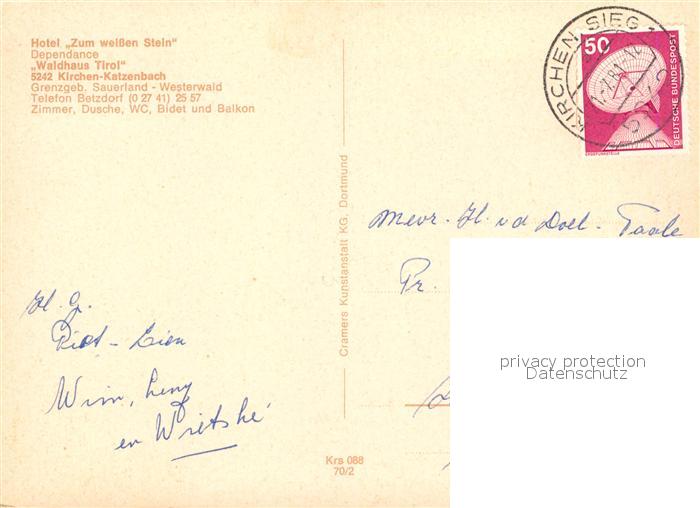 Hotel „Zum weißen Stein"
Dependance
„Waldhaus Tirol"
5242 Kirchen-Katzenbach
Grenzgeb. Sauerland - Westerwald
Telefon Betzdorf (0 27 41) 25 57
Zimmer, Dusche, WC, Bidet und Balkon
KIRCHEN, SIEG 1
50
DEUTSCHE BUNDESPOST
ERDEFUNKSTELLE
Cramers Kunstanstalt KG. Dortmund
Mevr. H. v d Doel - Taale
Pr.
H. G.
Piet - Lien
Wim, Heny
en Wietske
privacy protection
Datenschutz
Krs 088
70/2